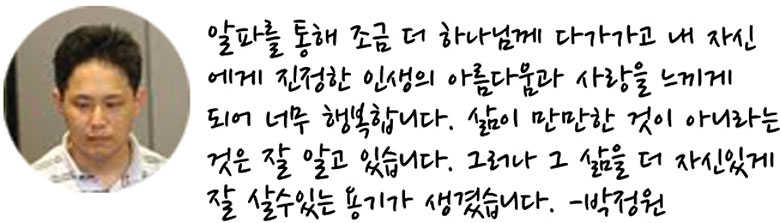 알파를 통해 조금 더 하나님께 다가가고 내 자신
에게 진정한 인생의 아름다움과 사랑을 느끼게
되어 너무 행복합니다. 삶이 만만한 것이 아니라는
것은 잘 알고 있습니다. 그러나 그 삶을 더 자신있게
잘 살수있는 용기가 생겼습니다. -박정원